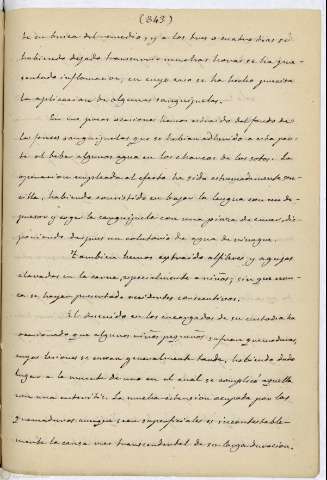 (343)
te en busca del remedio, y a los tres o cuatro dias si
habiendo dejado transcurrir muchas horas se ha pre-
sentado inflamacion, en cuyo caso se ha hecho precisa
la aplicacion de algunas sanguijuelas.
En una pocas ocasiones hemos estraido del fondo de
las fauces sanguijuelas que se habian adherido a esta par-
te al beber algunos agua en los charcos de los sotos. La
operacion empleada al efecto ha sido estremadamente sen-
cilla, habiendo consistido en bajar la lengua con un de-
presor y coger la sanguijuela con una pinza de curar, dis-
poniendo despues un colutorio de agua de vinagre.
Tambien hemos extraido alfileres y agujas
clavadas en la carne, especialmente a niños; sin que nun-
ca se hayan presentado accidentes consecutivos.
El descuido en los encargados de su custodia ha
ocasionado que algunos niños pequeños sufran quemaduras,
cuyas lesiones se curan generalmente tarde, habiendo dado
lugar a la muerte de uno en el cual se complicó aquella
con una enteritis. La mucha estension ocupada por las
quemaduras aunque sean superficiales es incontestable-
mente la causa mas transcendental de su larga duracion.